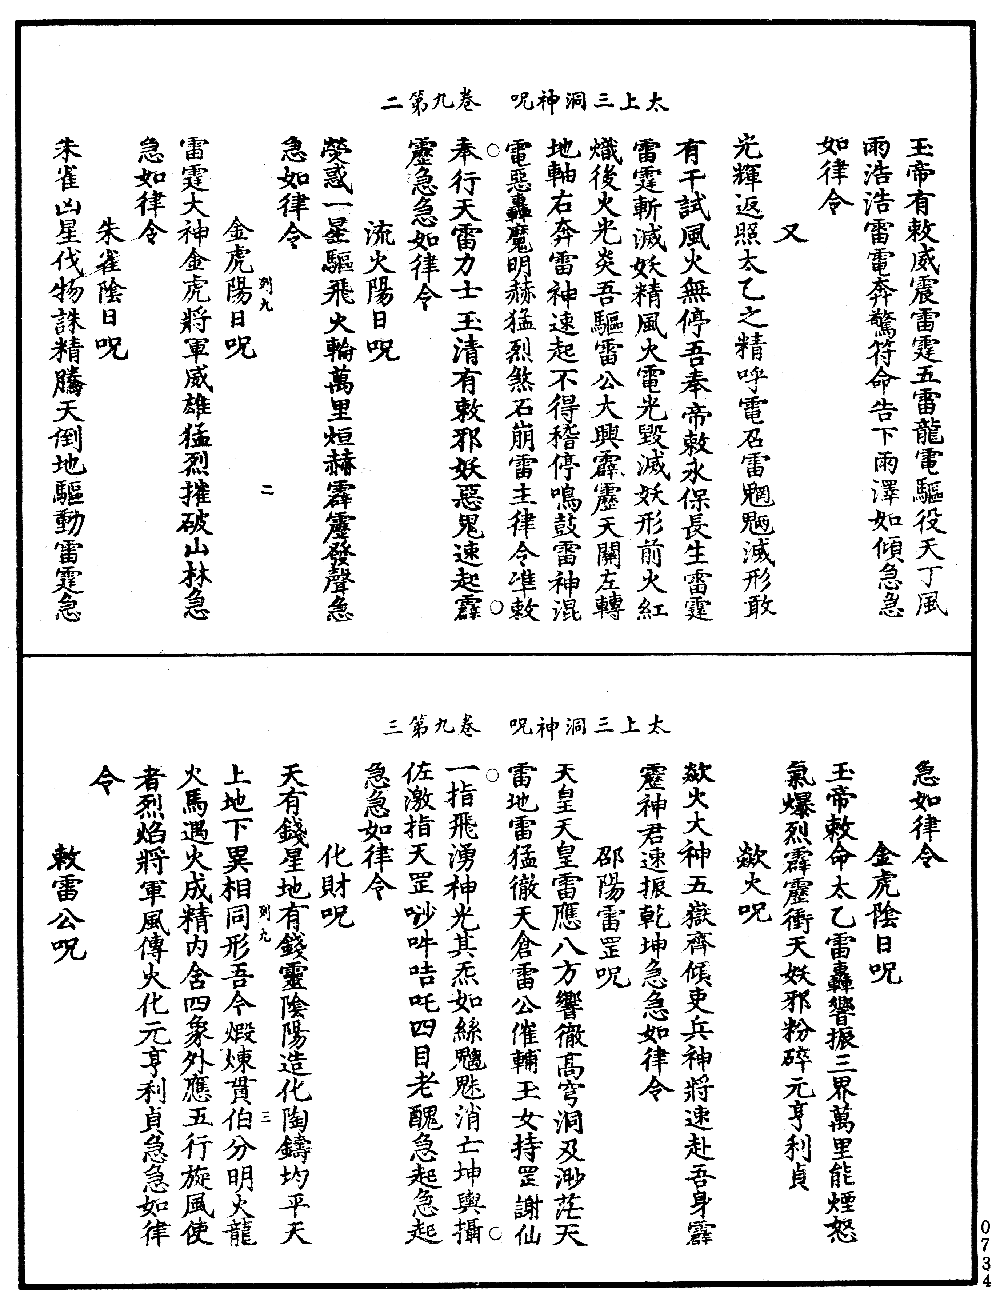 太上三洞神呪　卷九第二
玉帝有敕威震雷霆五雷龍電驅役天丁風
雨浩浩雷電奔驚符命告下雨澤如傾急急
如律令
又
光輝返照太乙之精呼電召雷魍魎滅形敢
有干試風火無停吾奉帝敕永保長生雷霆
雷霆斬滅妖精風火電光毀滅妖形前火紅
熾後火光炎吾驅雷公大興霹靂天關左轉
地軸右奔雷神速起不得稽停鳴鼓雷神混
電惡轟魔明赫猛烈煞石崩雷主律令准敕
奉行天雷力士玉清有敕邪妖惡鬼速起霹
靂急急如律令
流火陽日呪
熒惑一星驅飛火輪萬里烜赫霹靂發聲急
急如律令
列九
二
金虎陽日呪
雷霆大神金虎將軍威雄猛烈摧破山林急
急如律令
朱雀陰日呪
朱雀凶星伐物誅精騰天倒地驅動雷霆急
太上三洞神呪　卷九第三
急如律令
金虎陰日呪
玉帝敕命太乙雷轟響振三界萬里能煙怒
氣爆烈霹靂衝天妖邪粉碎元亨利貞
歘火呪
歘火大神五嶽齊傾吏兵神將速赴吾身霹
靂神君速振乾坤急急如律令
邵陽雷罡呪
天皇天皇雷應八方響徹高穹洞及渺茫天
雷地雷猛徹天倉雷公催輔玉女持罡謝仙
一指飛湧神光其炁如絲魑魅消亡坤輿攝
佐激指天罡吵吽咭吒四目老醜急起急起
急急如律令
化財呪
天有錢星地有錢靈陰陽造化陶鑄均平天
上地下異相同形吾今煆煉貫伯分明火龍
列九
三
火馬遇火成精內含四象外應五行旋風使
者烈焰將軍風傳火化元亨利貞急急如律
令
敕雷公呪
0734